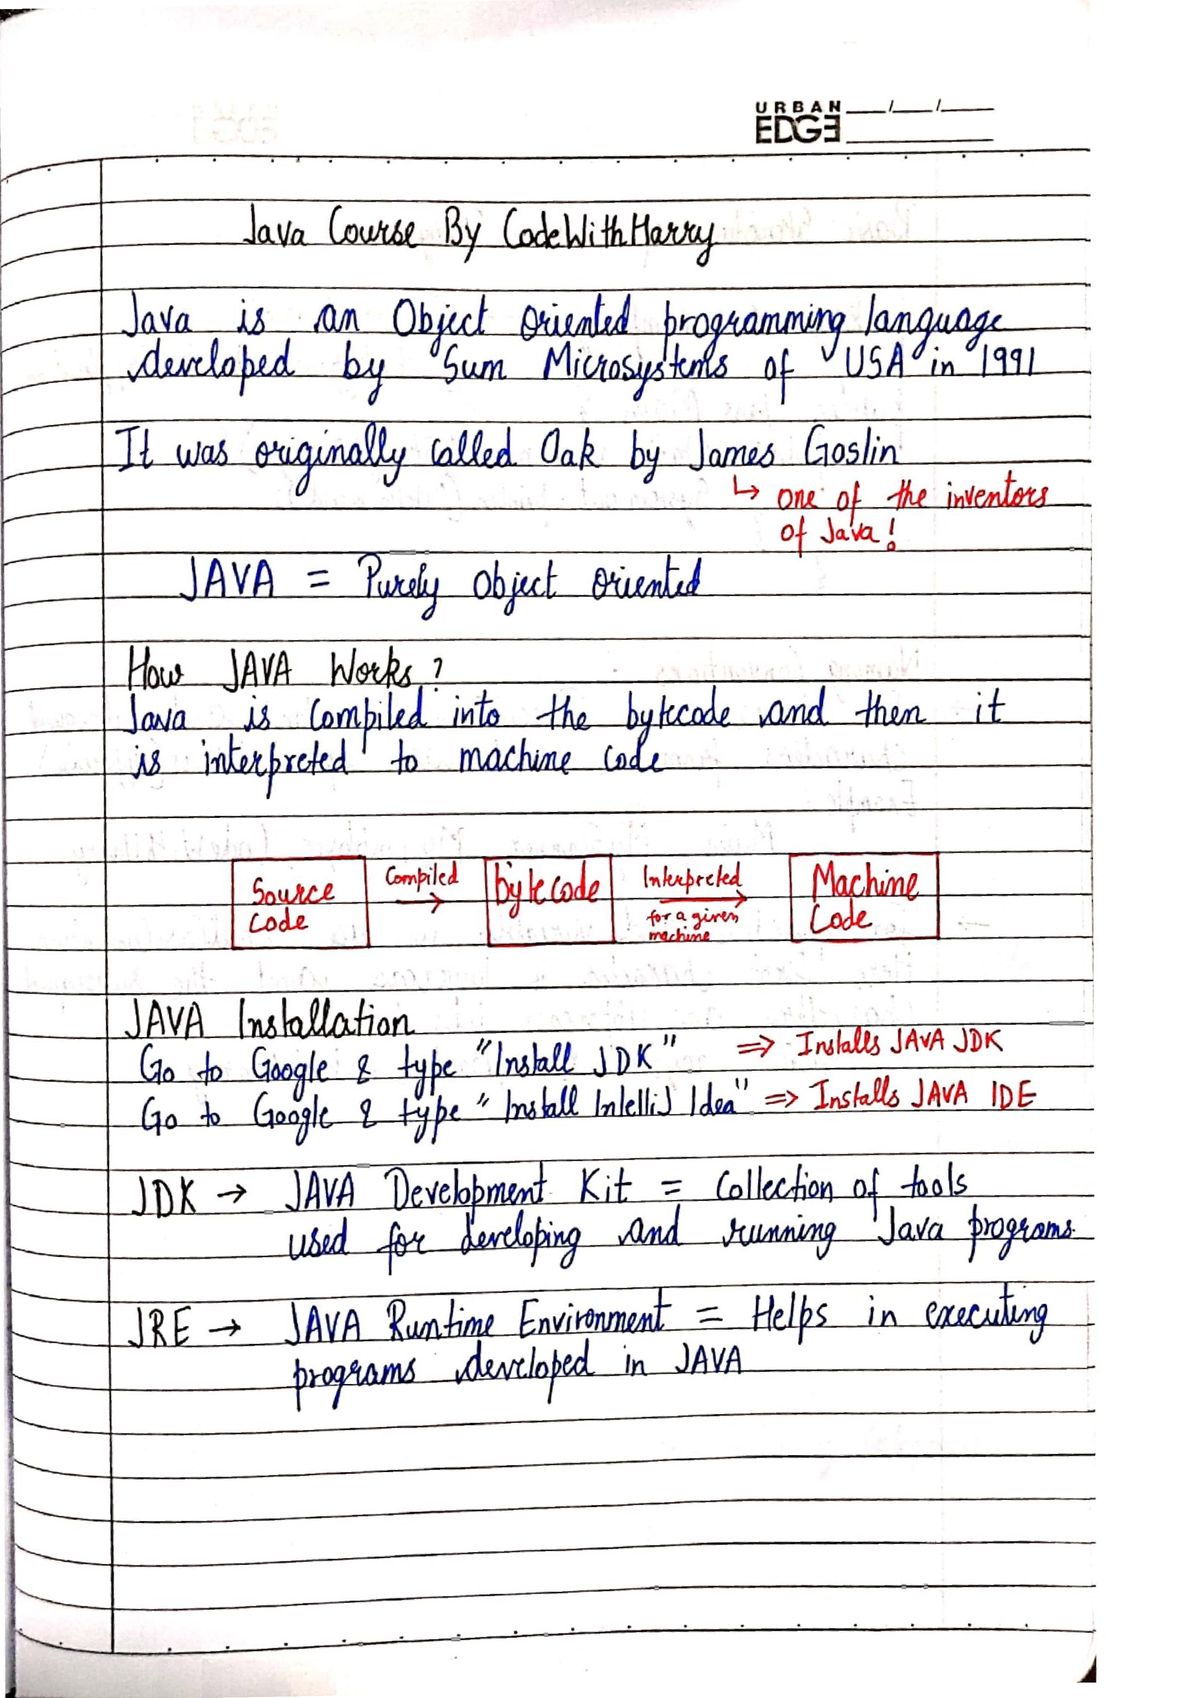 URBAN
EDGE
Java Course By CodeWithHarry
Java is an Object Oriented programming language
developed by Sum Microsystems of USA in 1991
It was originally called Oak by James Goslin
↳ one of the inventors
of Java!
JAVA = Purely object oriented
How JAVA Works?
Java is compiled into the bytecode and then it
is interpreted to machine code
Source Code
Compiled →
bytecode
Interpreted →
for a given machine
Machine Code
JAVA Installation
Go to Google & type "Install JDK" ⇒ Installs JAVA JDK
Go to Google & type "Install IntelliJ Idea" ⇒ Installs JAVA IDE
JDK → JAVA Development Kit = Collection of tools
used for developing and running Java programs.
JRE → JAVA Runtime Environment = Helps in executing
programs developed in JAVA